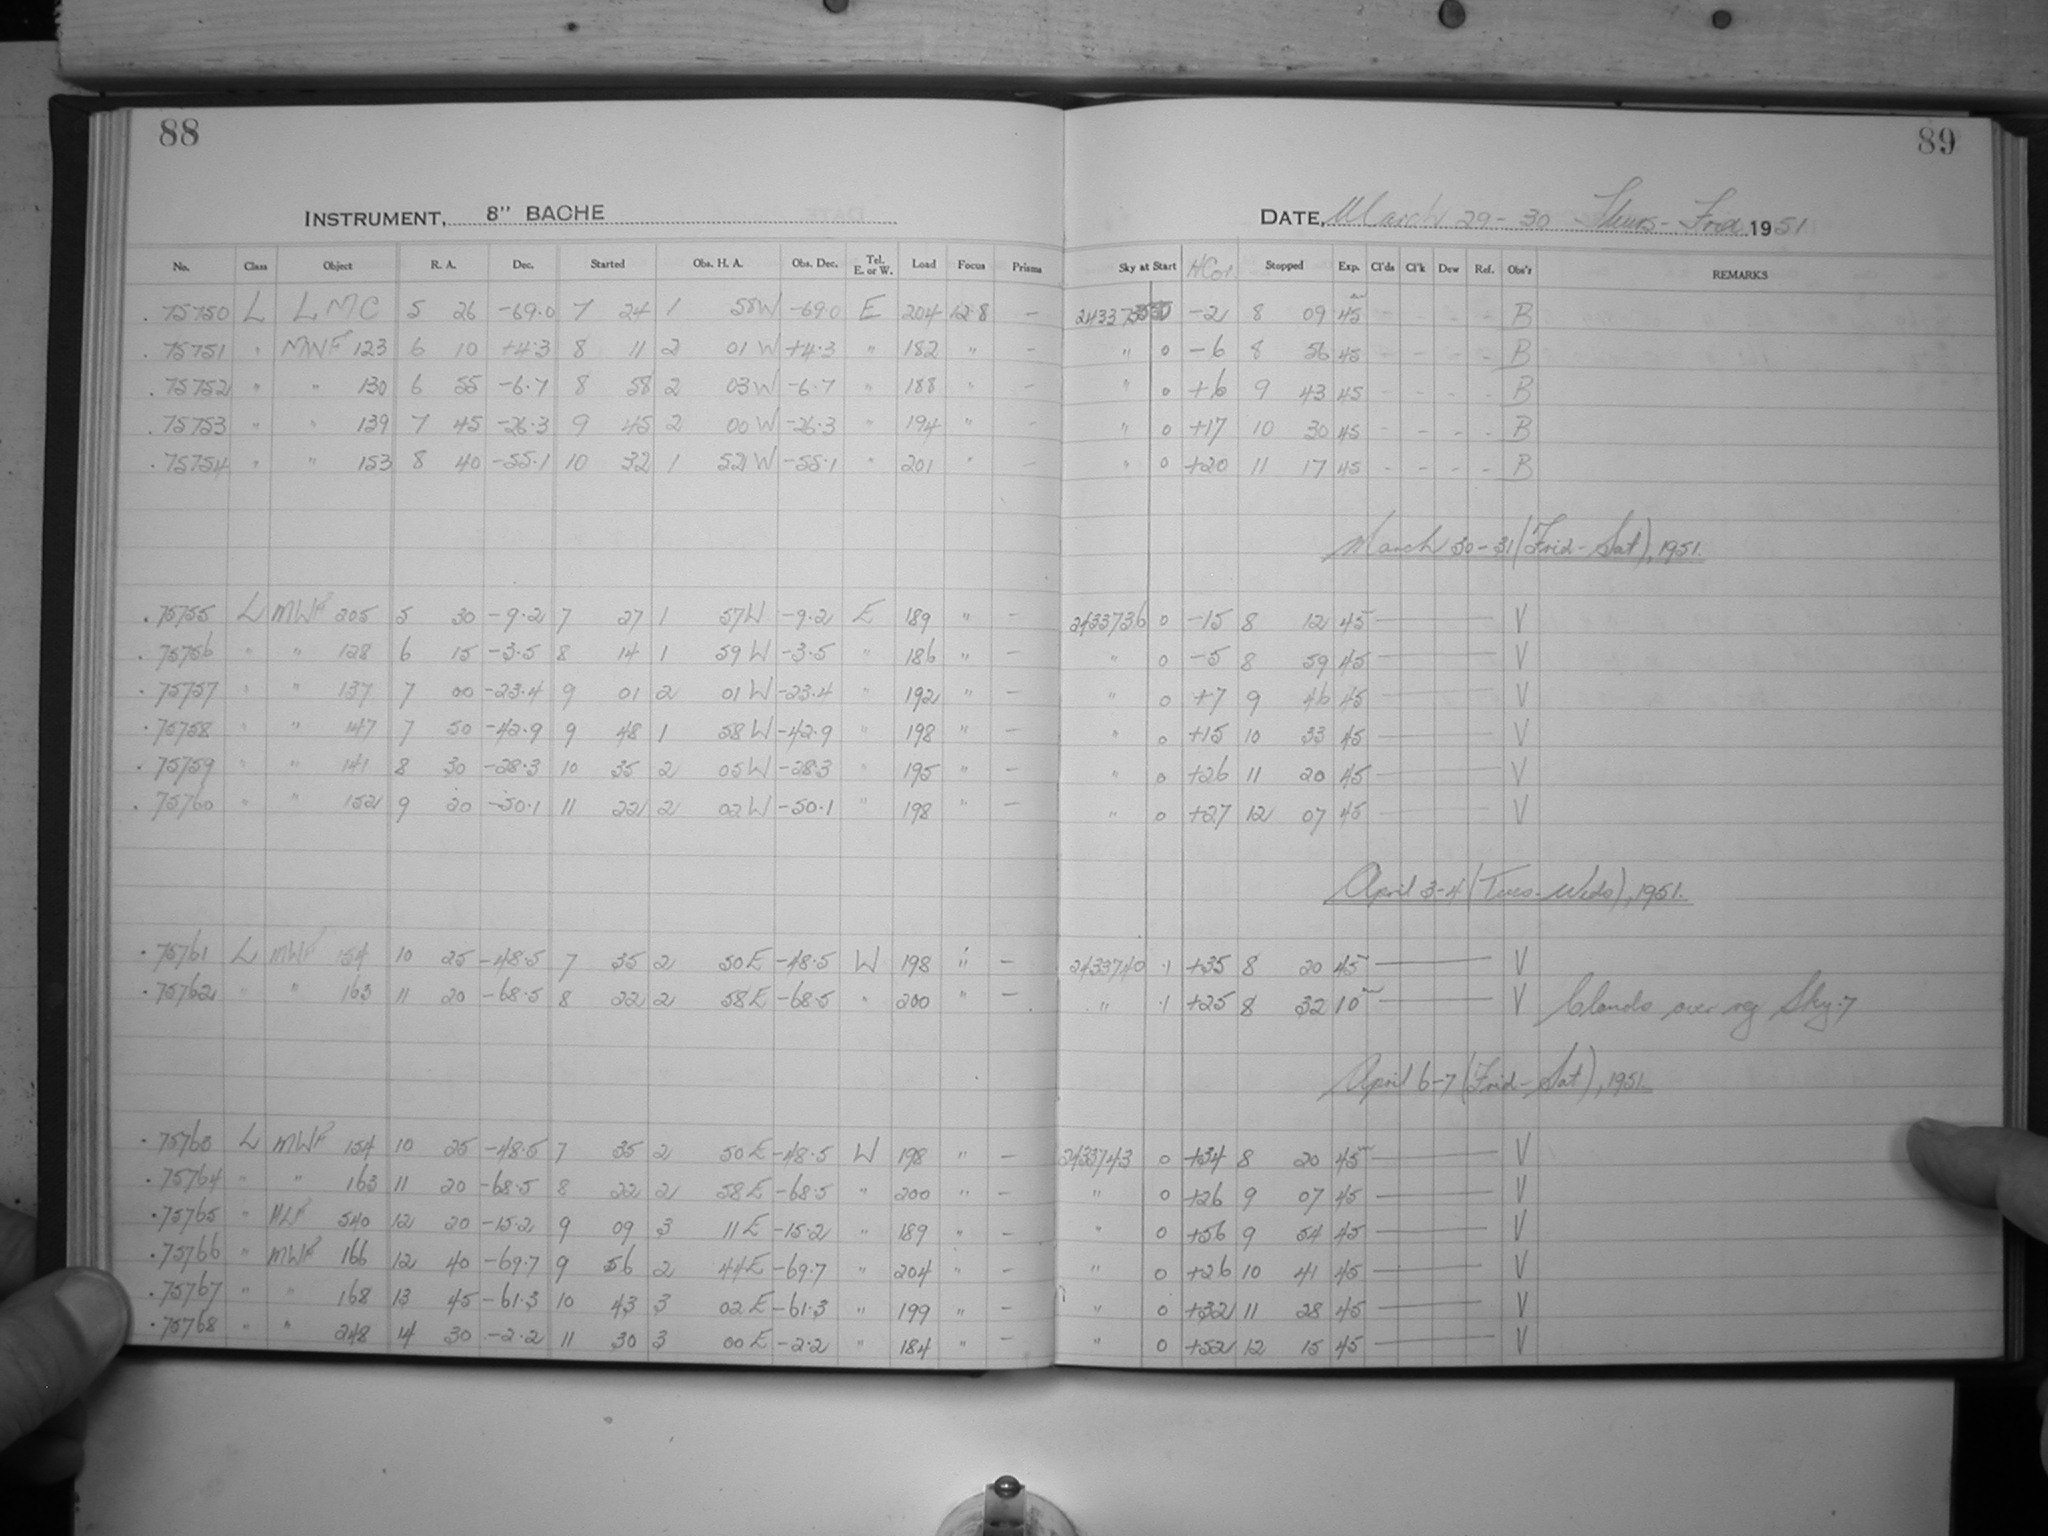 88
89
INSTRUMENT, 8" BACHE
DATE, March 29-30 Thurs-Frid 1951
No. Class Object R. A. Dec. Started Obs. H. A. Obs. Dec. Tel. E. or W. Load Focus Prisms Sky at Start HCor. Stopped Exp. Cl'ds Cl'k Dew Ref. Obs'r REMARKS
. 75750 L LMC 5 26 -69.0 7 24 1 58W -69.0 E 204 12.8 - -2 8 09 45 - - - - B
. 75751 " MWF 123 6 10 +4.3 8 11 2 01W +4.3 " 182 " - " 0 -6 8 56 45 - - - - B
. 75752 " " 130 6 55 -6.7 8 58 2 03W -6.7 " 188 " - " 0 +6 9 43 45 - - - - B
. 75753 " " 139 7 45 -26.3 9 45 2 00W -26.3 " 194 " - " 0 +17 10 30 45 - - - - B
. 75754 " " 153 8 40 -55.1 10 32 1 52W -55.1 " 201 " - " 0 +20 11 17 45 - - - - B
March 30-31 (Frid-Sat), 1951.
. 75755 L MWF 205 5 30 -9.2 7 27 1 57W -9.2 E 189 " - 2433736 0 -15 8 12 45 V
. 75756 " " 128 6 15 -3.5 8 14 1 59W -3.5 " 186 " - " 0 -5 8 59 45 V
. 75757 " " 137 7 00 -23.4 9 01 2 01W -23.4 " 192 " - " 0 +7 9 46 45 V
. 75758 " " 147 7 50 -42.9 9 48 1 58W -42.9 " 198 " - " 0 +15 10 33 45 V
. 75759 " " 141 8 30 -28.3 10 35 2 05W -28.3 " 195 " - " 0 +26 11 20 45 V
. 75760 " " 152 9 20 -50.1 11 22 2 02W -50.1 " 198 " - " 0 +27 12 07 45 V
April 3-4 (Tues-Weds), 1951.
. 75761 L MWF 154 10 25 -48.5 7 35 2 50E -48.5 W 198 " - 2433740 .1 +35 8 20 45 V
. 75762 " " 163 11 20 -68.5 8 22 2 58E -68.5 " 200 " - " .1 +25 8 32 10 V Clouds over reg Sky .7
April 6-7 (Frid-Sat), 1951.
. 75763 L MWF 154 10 25 -48.5 7 35 2 50E -48.5 W 198 " - 2433743 0 +34 8 20 45 V
. 75764 " " 163 11 20 -68.5 8 22 2 58E -68.5 " 200 " - " 0 +26 9 07 45 V
. 75765 " HLF 540 12 20 -15.2 9 09 3 11E -15.2 " 189 " - " 0 +56 9 54 45 V
. 75766 " MWF 166 12 40 -69.7 9 56 2 44E -69.7 " 204 " - " 0 +26 10 41 45 V
. 75767 " " 168 13 45 -61.3 10 43 3 02E -61.3 " 199 " - " 0 +32 11 28 45 V
. 75768 " " 248 14 30 -2.2 11 30 3 00E -2.2 " 184 " - " 0 +52 12 15 45 V